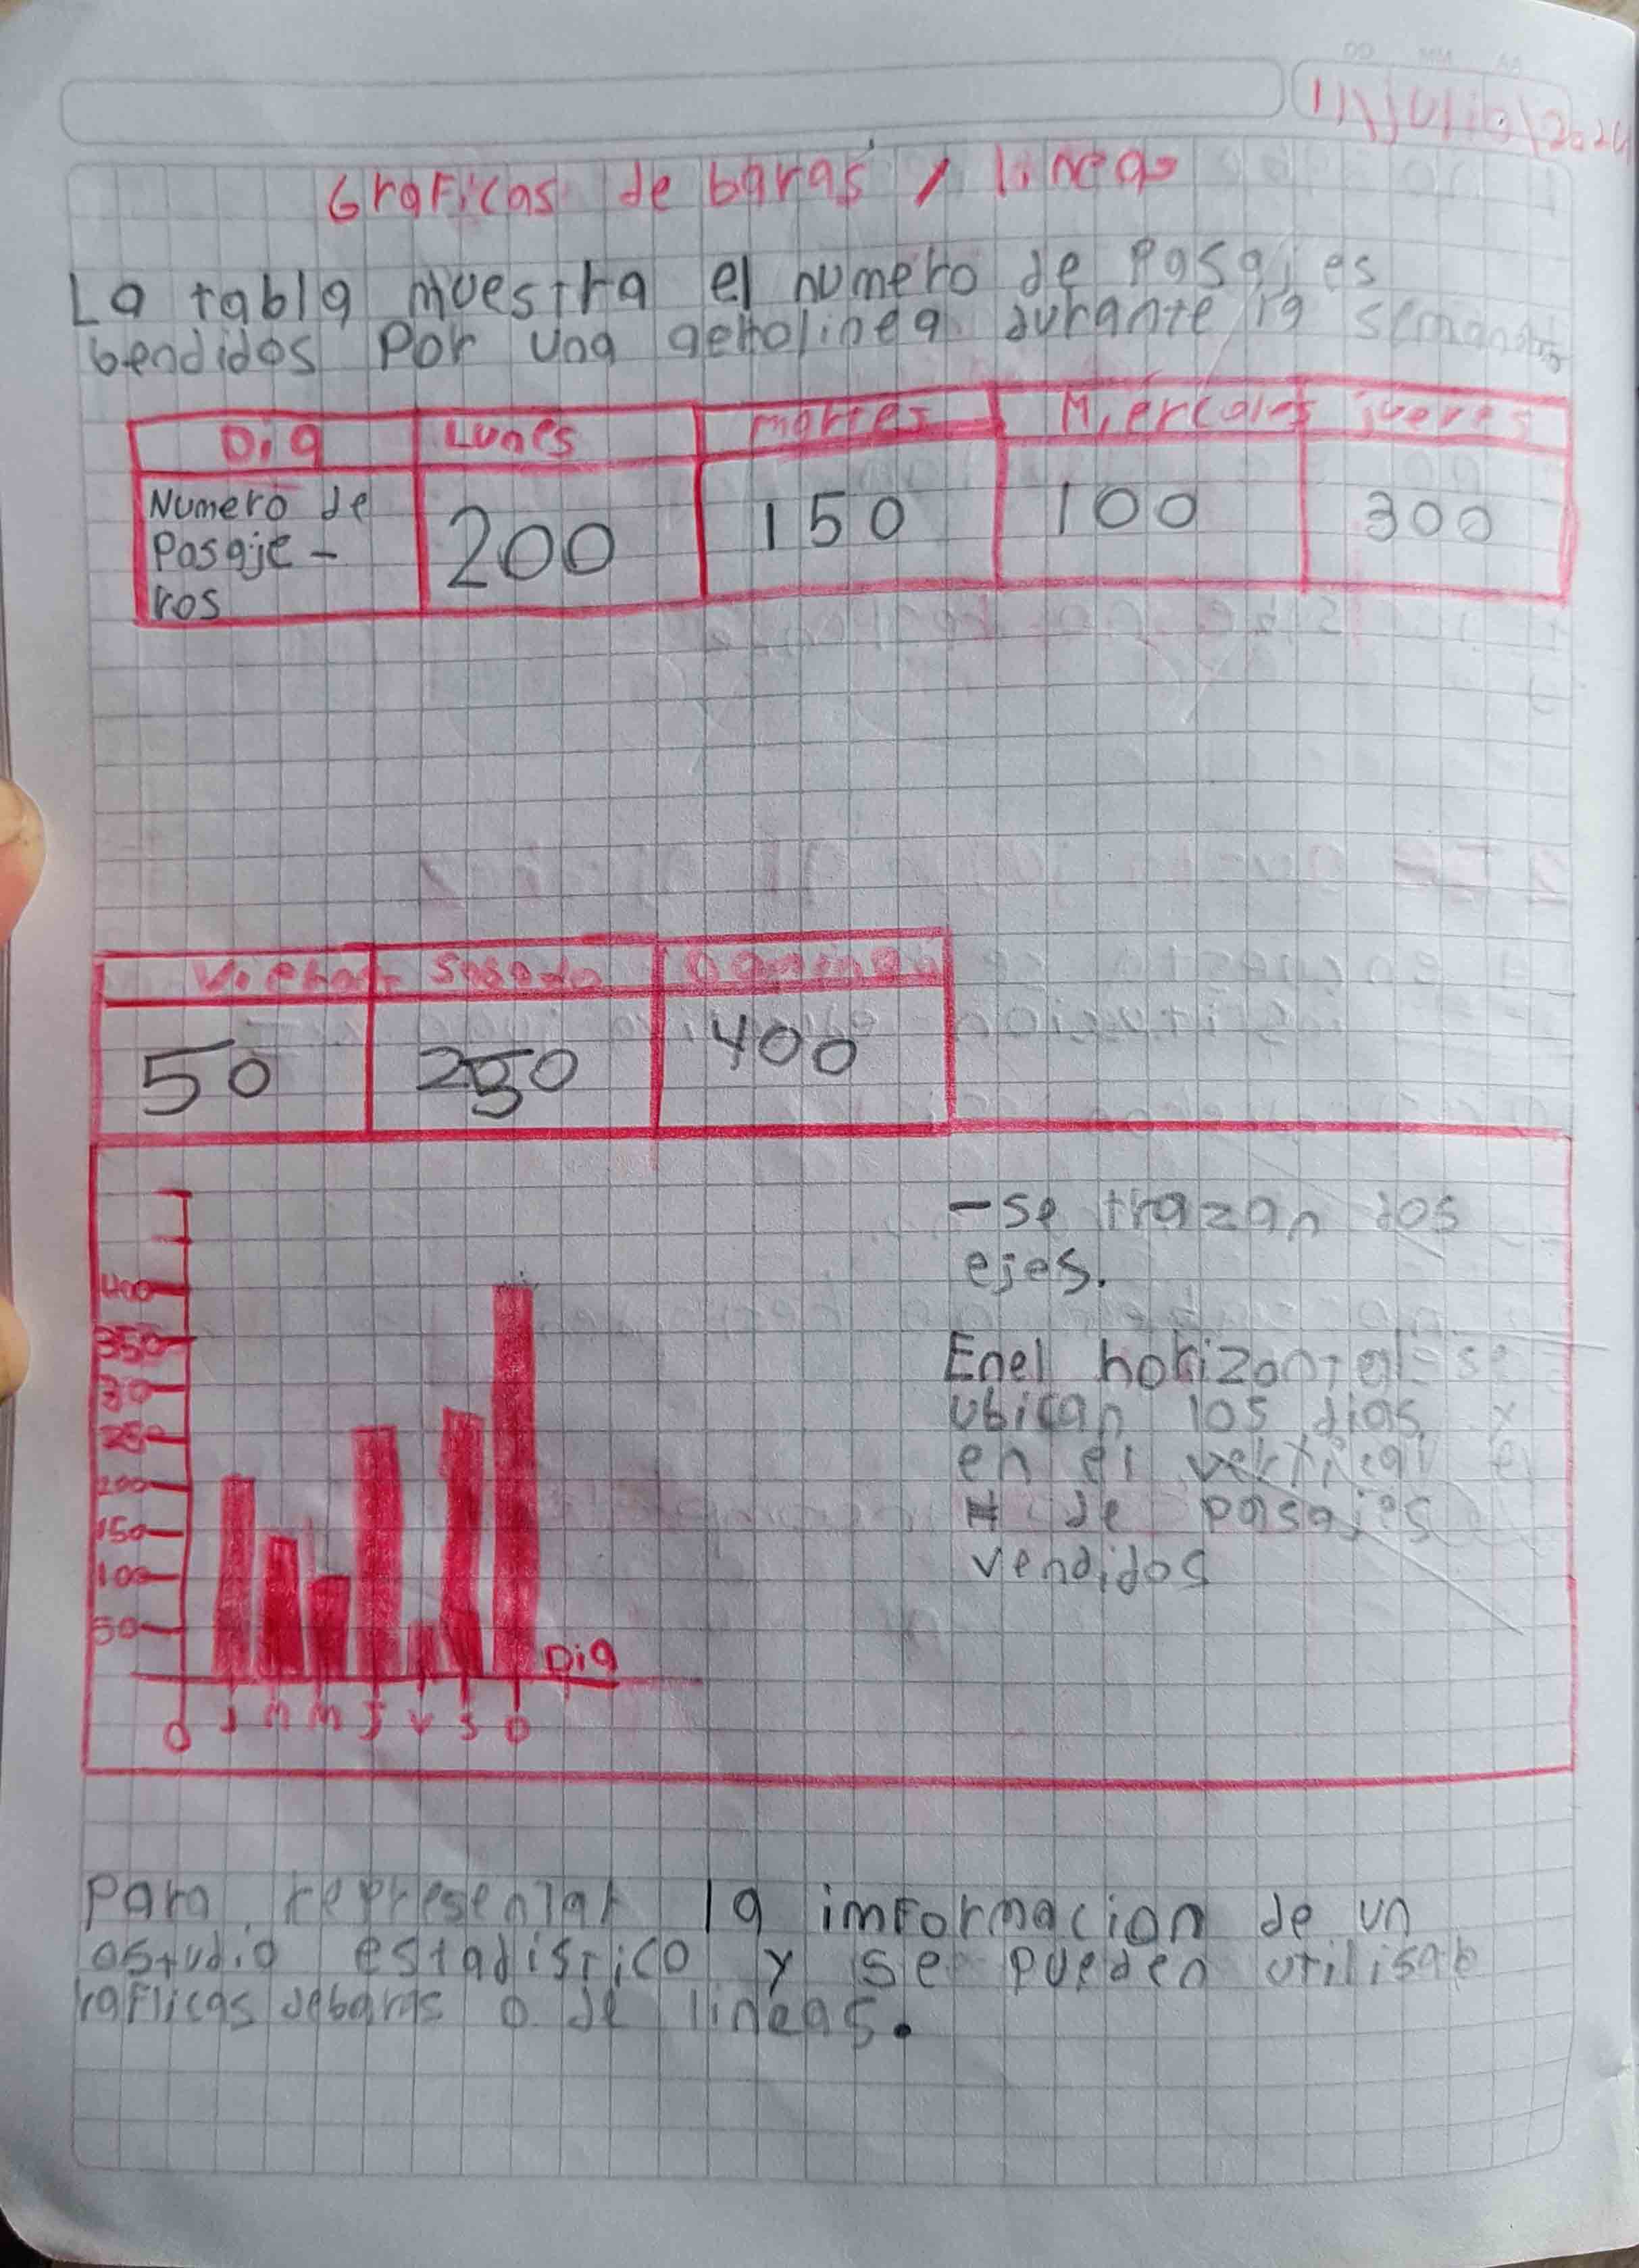 11/julio/2024
Graficas de baras y lineas
La tabla muestra el numero de Pasajes
bendidos Por una aerolinea durante la semana
Dia Lunes martes Miercoles jueves
Numero de
Pasaje-
ros
200 150 100 300
Viernes Sabado Domingo
50 250 400
-se trazan dos
ejes.
Enel horizontal se
ubican los dias y
en el vertical el
# de pasajes
vendidos
400
350
30
250
200
150
100
50
Dia
0 L M M J V S D
Para representar la imformacion de un
estudio estadistico y se pueden utilisar
raficas debaras o de lineas.